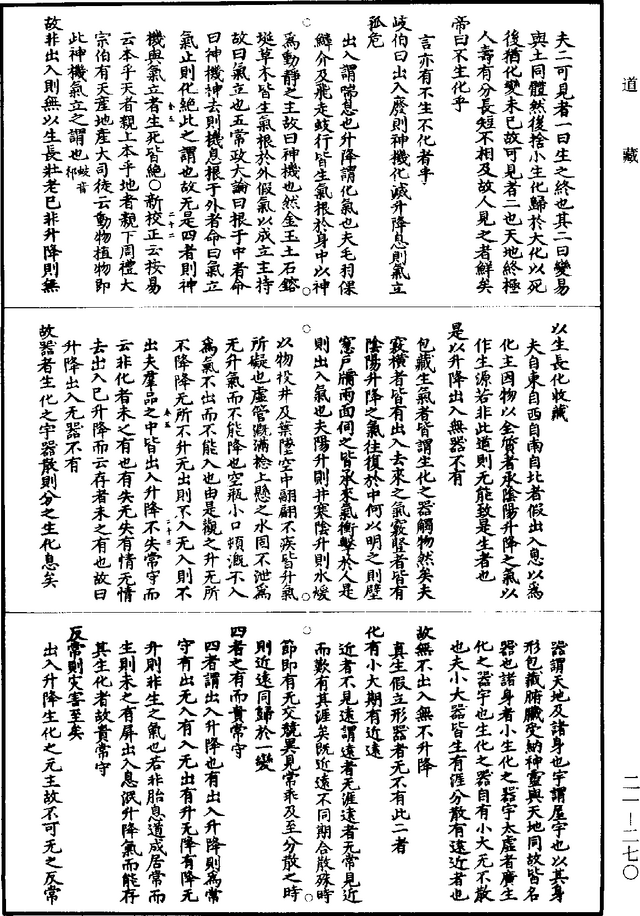 道藏
夫二可見者一曰生之終也其二曰變易
與土同體然後捨小生化歸於大化以死
後猶化變未已故可見者二也天地終極
人壽有分長短不相及故人見之者鮮矣
帝曰不生化乎
言亦有不生不化者乎
岐伯曰出入廢則神機化滅升降息則氣立
孤危
出入謂喘息也升降謂化氣也夫毛羽倮
鱗介及飛走蚑行皆生氣根於身中以神
為動靜之主故曰神機也然金玉土石鎔
埏草木皆生氣根於外假氣以成立主持
故曰氣立也五常政大論曰根于中者命
曰神機神去則機息根于外者命曰氣立
氣止則化絕此之謂也故无是四者則神
機與氣立者生死皆絕○新校正云按易
云本乎天者親上本乎地者親下周禮大
宗伯有天產地產大司徒云動物植物即
此神機氣立之謂也蚑音祁
故非出入則無以生長壯老已非升降則無
以生長化收藏
夫自東自西自南自北者假出入息以為
化主因物以全質者承陰陽升降之氣以
作生源若非此道則无能致是生者也
是以升降出入無器不有
包藏生氣者皆謂生化之器觸物然矣夫
竅橫者皆有出入去來之氣竅竪者皆有
陰陽升降之氣往復於中何以明之則壁
窻戶牖兩面伺之皆承來氣衝擊於人是
則出入氣也夫陽升則井寒陰升則水煖
以物投井及葉墜空中翩翩不疾皆升氣
所礙也虛管溉滿捻上懸之水固不泄為
无升氣而不能降也空瓶小口頓溉不入
為氣不出而不能入也由是觀之升无所
不降降无所不升无出則不入无入則不
出夫羣品之中皆出入升降不失常守而
云非化者未之有也有失无失有情无情
去出入已升降而云存者未之有也故曰
升降出入无器不有
故器者生化之宇器散則分之生化息矣
器謂天地及諸身也宇謂屋宇也以其身
形包藏腑臟受納神靈與天地同故皆名
器也諸身者小生化之器宇太虛者廣生
化之器宇也生化之器自有小大无不散
也夫小大器皆生有涯分散有遠近者也
故無不出入無不升降
真生假立形器者无不有此二者
化有小大期有近遠
近者不見遠謂遠者无涯遠者无常見近
而歎有其涯矣既近遠不同期合散殊時
節即有无交競異見常乖及至分散之時
則近遠同歸於一變
四者之有而貴常守
四者謂出入升降也有出入升降則為常
守有出无入有入无出有升无降有降无
升則非生之氣也若非胎息道成居常而
生則未之有屏出入息泯升降氣而能存
其生化者故貴常守
反常則灾害至矣
出入升降生化之元主故不可无之反常
二一—二七〇